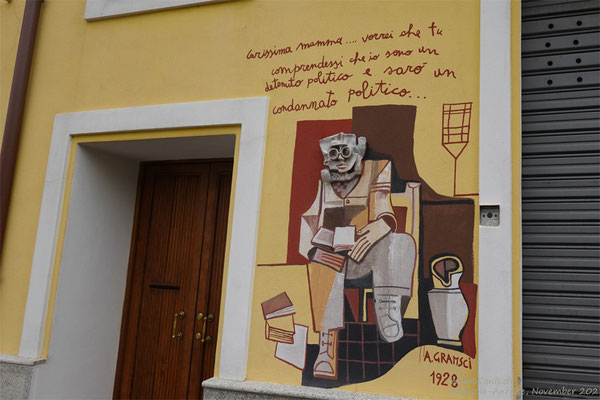 Carissima mamma.... vorrei che tu
comprendessi che io sono un
detenuto politico e sarò un
condannato politico...
A. GRAMSCI
1928
November 202